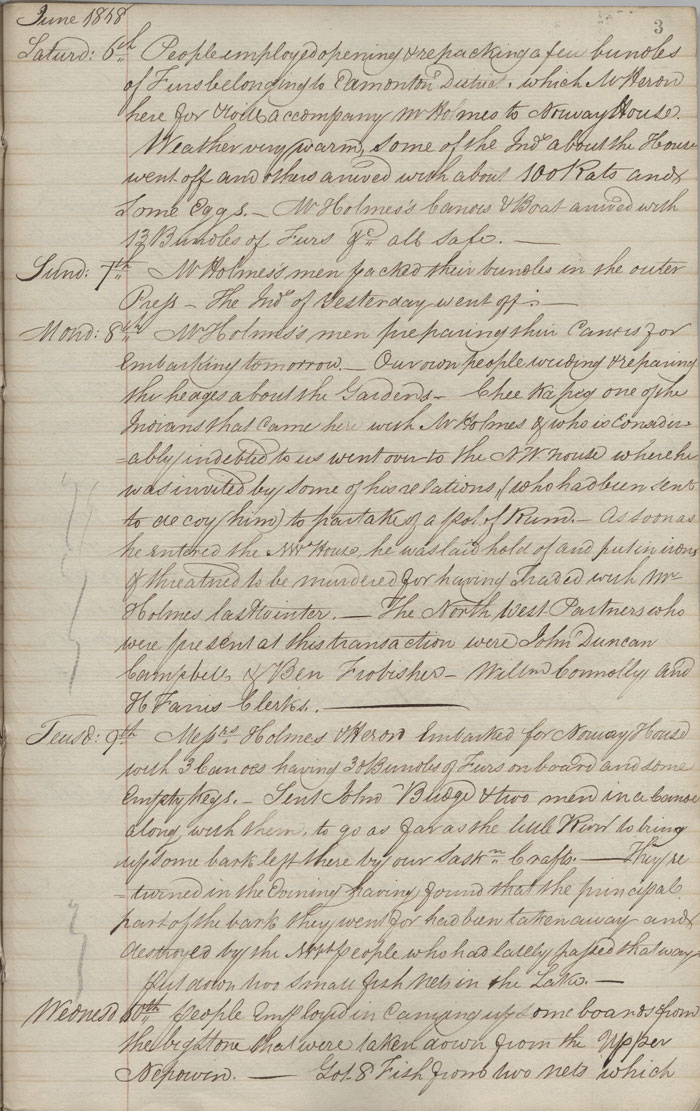 June 1818
3
Saturd: 6th People employed opening & repacking a few bundles
of Furs belonging to Edmonton District, which Mr Heron
here for & will accompany Mr Holmes to Norway House.
Weather very warm, some of the Inds about the House
went off and others arrived with about 100 Rats and
Some Eggs. — Mr Holmes's Canoes & Boat arrived with
13 Bundles of Furs &c all safe. —
Sund: 7th Mr Holmes's men packed their bundles in the outer
Press — The Inds of Yesterday went off: —
Mond: 8th Mr Holmes's men preparing their Canoes for
Embarking tomorrow. — Our own people weeding & repairing
the hedges about the Gardens — Chee ka peg one of the
Indians that came here with Mr Holmes & who is consider-
=ably indebted to us went over to the N.W. house where he
was invited by some of his relations, (who had been sent
to decoy him) to partake of a pot of Rum. — As soon as
he entered the NWt House, he was laid hold of and put in irons
& threatned to be murdered for having Traded with Mr
Holmes last winter. — The North West Partners who
were present at this transaction were John Duncan
Campbell, & Ben Frobisher — Willm Connolly and
H Faries Clerks. —
Teusd: 9th Messrs Holmes & Heron Embarked for Norway House
with 3 Canoes having 30 Bundles of Furs on board and some
Empty Kegs. — Sent John Budge & two men in a Canoe
along with them, to go as far as the little River to bring
up some bark left there by our Saskn Crafts. — They re
=turned in the Evening having found that the principal
part of the bark they went for had been taken away and
destroyed by the NWt people who had lately passed that way
Put down two small fish nets in the Lake. —
Wednesd 10th People Employed in Carrying up some boards from
the bigstone that were taken down from the Upper
Nepowen. — Got 8 Fish from two nets which